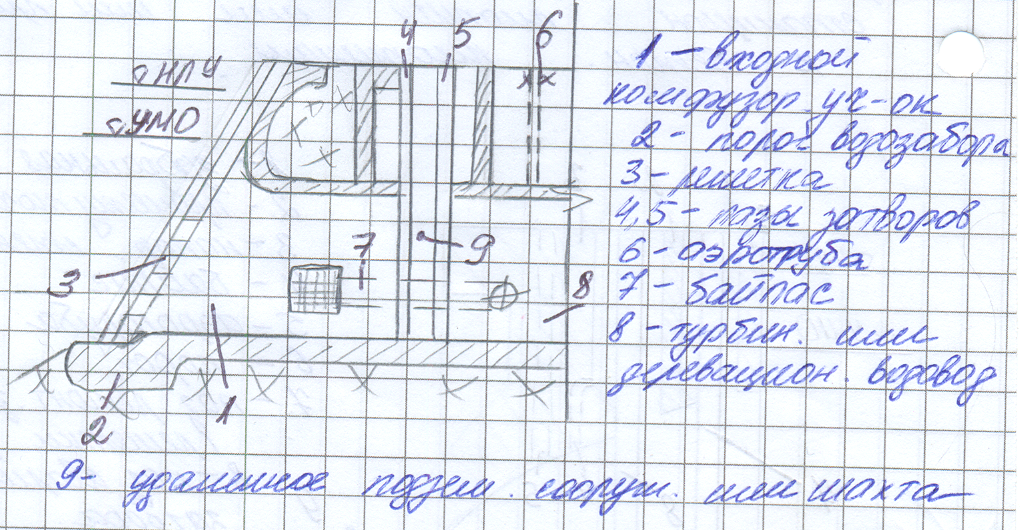 4 5 6
▽НПУ
▽УМО
1 – входной
комфузор. уч-ок
2 - порог водозабора
3 - решетка
4,5 - пазы затворов
6 - аэротруба
7 - байпас
8 - турбин. или
деревацион. водовод
7
9
3
8
2
1
9- удаленное подзем. сооруж. или шахта